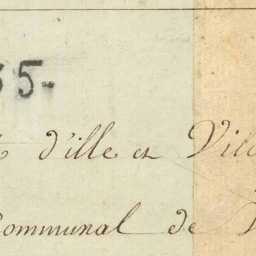 5-
d'ille et Vil
ommunal de